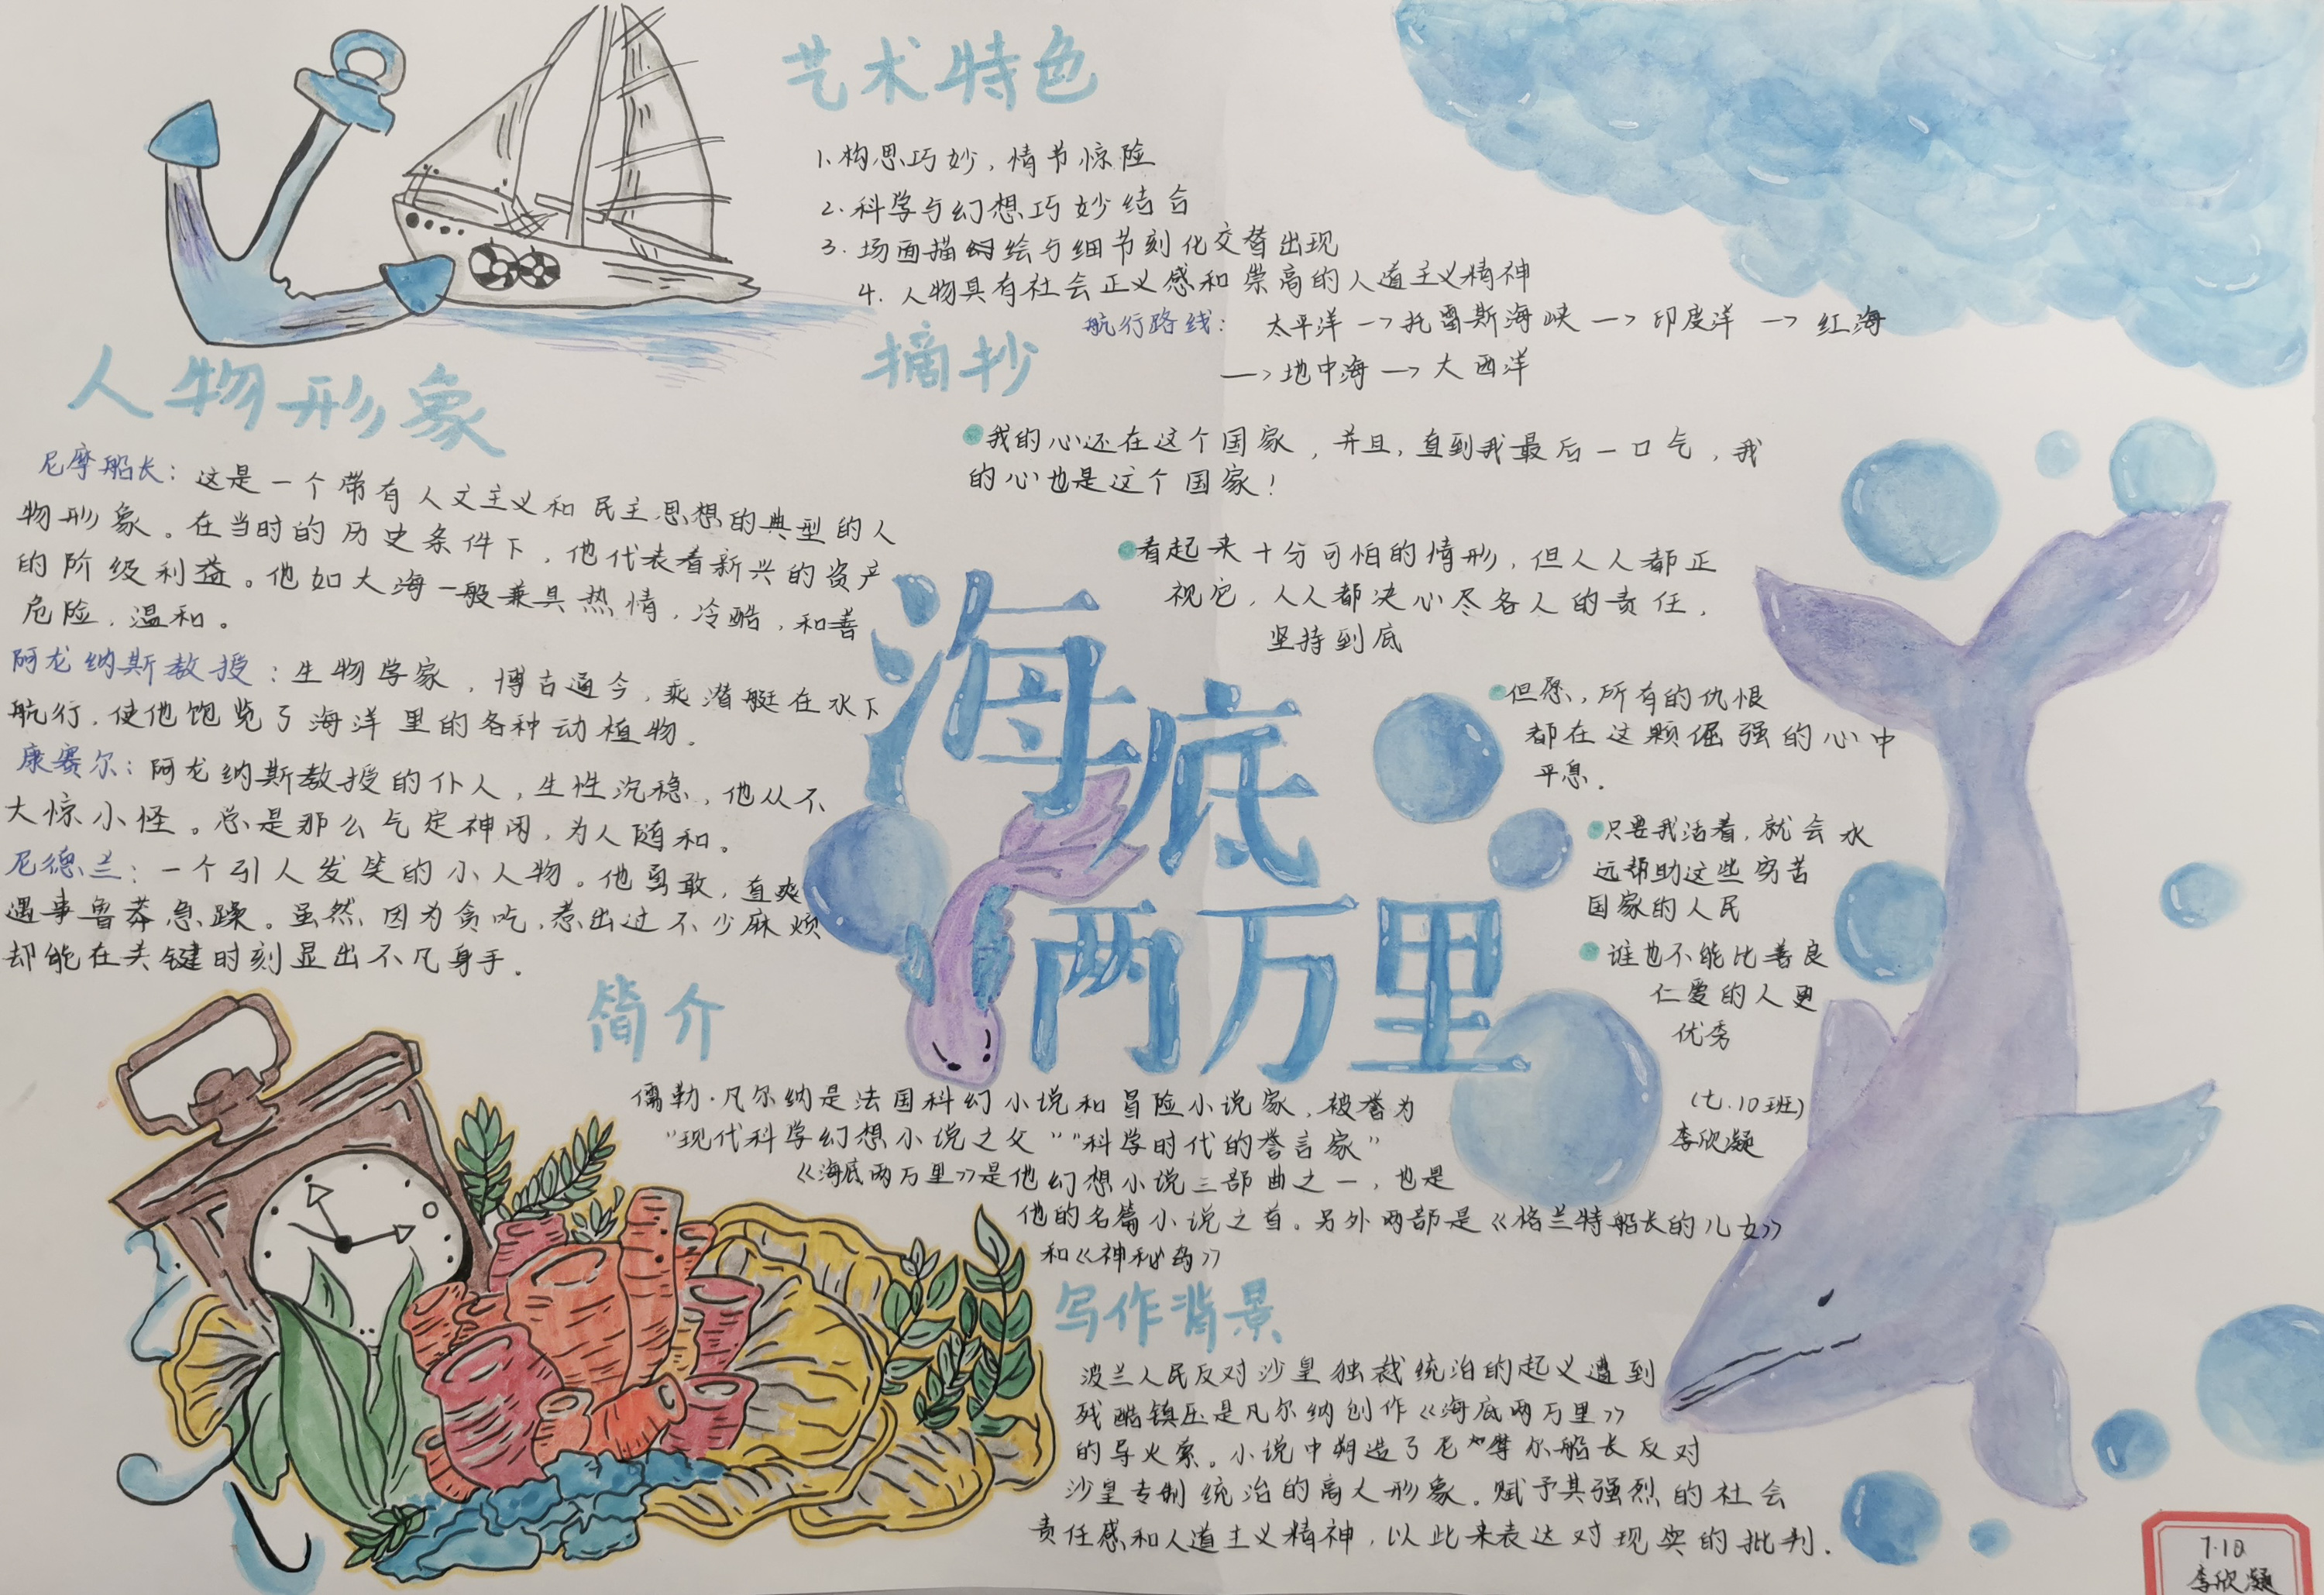 艺术特色
1.构思巧妙，情节惊险
2.科学与幻想巧妙结合
3.场面描绘与细节刻化交替出现
4.人物具有社会正义感和崇高的人道主义精神
航行路线：太平洋→托雷斯海峡→印度洋→红海
→地中海→大西洋
人物形象
尼摩船长：这是一个带有人文主义和民主思想的典型的人
物形象。在当时的历史条件下，他代表着新兴的资产
的阶级利益。他如大海一般兼具热情，冷酷，和善
危险，温和。
阿龙纳斯教授：生物学家，博古通今，乘潜艇在水下
航行，使他饱览了海洋里的各种动植物。
康赛尔：阿龙纳斯教授的仆人，生性沉稳，他从不
大惊小怪。总是那么气定神闲，为人随和。
尼德兰：一个引人发笑的小人物。他勇敢，直爽
遇事鲁莽急躁。虽然因为贪吃，惹出过不少麻烦
却能在关键时刻显出不凡身手。
摘抄
我的心还在这个国家，并且，直到我最后一口气，我
的心也是这个国家！
看起来十分可怕的情形，但人人都正
视它，人人都决心尽各人的责任，
坚持到底
但愿，所有的仇恨
都在这颗倔强的心中
平息．
只要我活着，就会永
远帮助这些穷苦
国家的人民
谁也不能比善良
仁爱的人更
优秀
(七.10班)
李欣凝
海底
两万里
简介
儒勒·凡尔纳是法国科幻小说和冒险小说家，被誉为
"现代科学幻想小说之父""科学时代的誉言家"
《海底两万里》是他幻想小说三部曲之一，也是
他的名篇小说之首。另外两部是《格兰特船长的儿女》
和《神秘岛》
写作背景
波兰人民反对沙皇独裁统治的起义遭到
残酷镇压是凡尔纳创作《海底两万里》
的导火索。小说中塑造了尼摩尔船长反对
沙皇专制统治的高人形象。赋予其强烈的社会
责任感和人道主义精神，以此来表达对现实的批判．
7.10
李欣凝